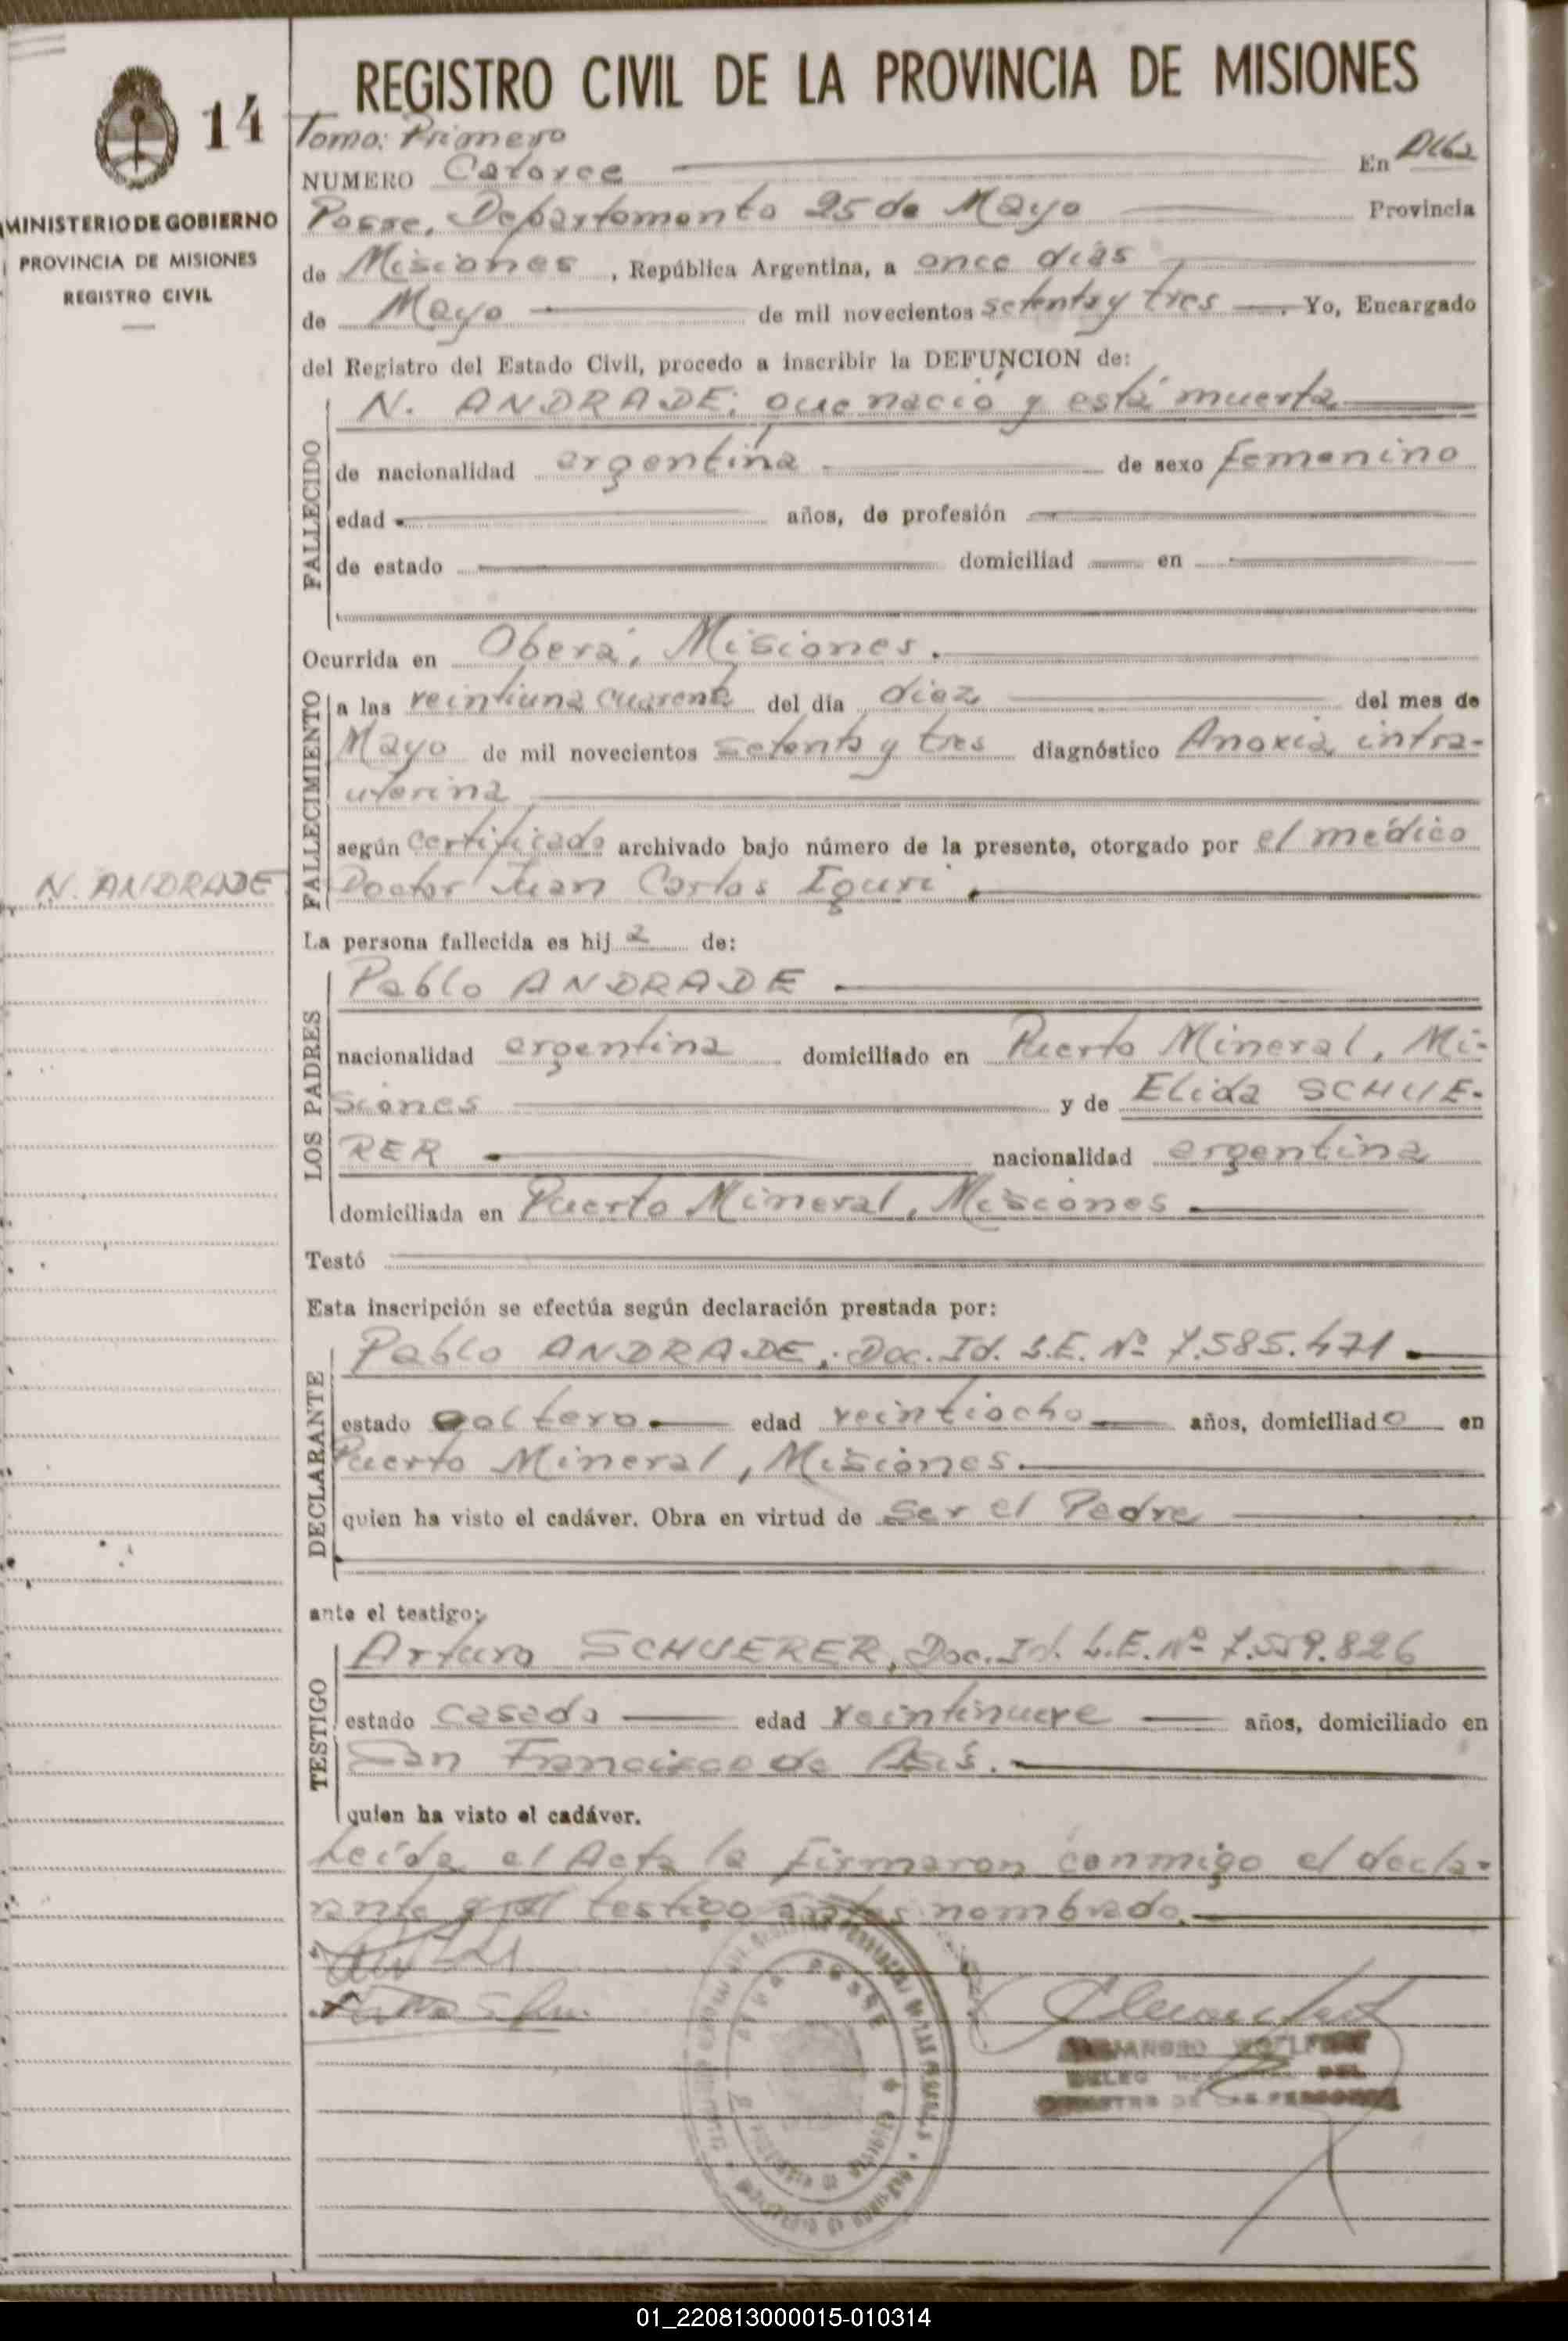 REGISTRO CIVIL DE LA PROVINCIA DE MISIONES
14
MINISTERIO DE GOBIERNO
PROVINCIA DE MISIONES
REGISTRO CIVIL
N. ANDRADE
Tomo: Primero
NUMERO Catorce En Alba
Posse, Departamento 25 de Mayo Provincia
de Misiones, República Argentina, a once días
de Mayo de mil novecientos setenta y tres. Yo, Encargado
del Registro del Estado Civil, procedo a inscribir la DEFUNCION de:
FALLECIDO
N. ANDRADE, que nació y está muerta
de nacionalidad argentina de sexo femenino
edad años, de profesión
de estado domiciliad en
Ocurrida en Oberá, Misiones.
FALLECIMIENTO
a las veintiuna cuarenta del día diez del mes de
Mayo de mil novecientos setenta y tres diagnóstico Anoxia intra-
uterina
según certificado archivado bajo número de la presente, otorgado por el médico
Doctor Juan Carlos
La persona fallecida es hija de:
LOS PADRES
Pablo ANDRADE
nacionalidad argentina domiciliado en Puerto Mineral, Mi-
siones y de Elida SCHUE-
RER nacionalidad argentina
domiciliada en Puerto Mineral, Misiones
Testó
Esta inscripción se efectúa según declaración prestada por:
DECLARANTE
Pablo ANDRADE, Doc. Id. L.E. Nº 7.585.471
estado soltero edad veintiocho años, domiciliado en
Puerto Mineral, Misiones.
quien ha visto el cadáver. Obra en virtud de ser el Padre
ante el testigo:
TESTIGO
Arturo SCHUERER, Doc. Id. L.E. Nº 7.559.826
estado casado edad veintinueve años, domiciliado en
San Francisco de Asís.
quien ha visto el cadáver.
Leída el Acta la firmaron conmigo el decla-
rante y el testigo antes nombrado.
01_220813000015-010314